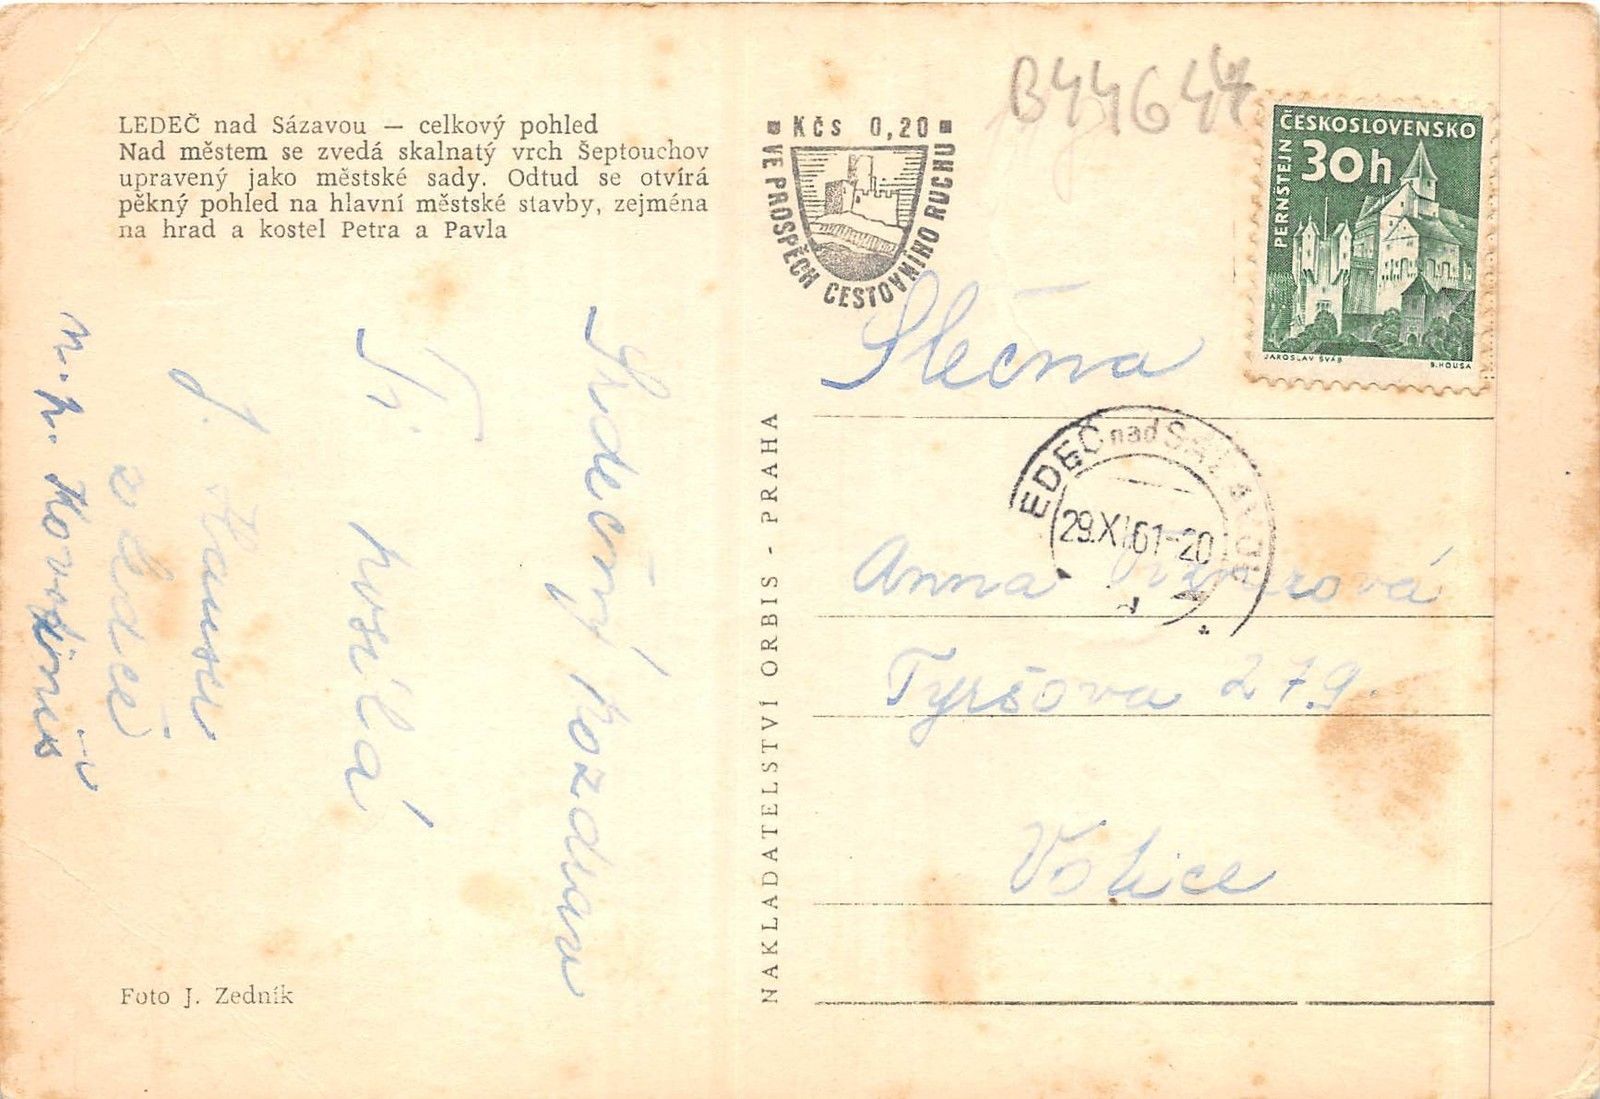 LEDEČ nad Sázavou — celkový pohled
Nad městem se zvedá skalnatý vrch Šeptouchov
upravený jako městské sady. Odtud se otvírá
pěkný pohled na hlavní městské stavby, zejména
na hrad a kostel Petra a Pavla
Srdečný pozdrav
Ti posílá
J.
z Ledče
n. p. Kovofiniš
Foto J. Zedník
NAKLADATELSTVÍ ORBIS - PRAHA
Kčs 0,20
VE PROSPĚCH CESTOVNÍHO RUCHU
B44644
ČESKOSLOVENSKO
30h
PERNŠTEJN
JAROSLAV ŠVÁB
B. HOUSA
EDEČ nad SÁZAVOU
29.XI.61-20
Slečna
Anna
Tyršova 279.
Votice